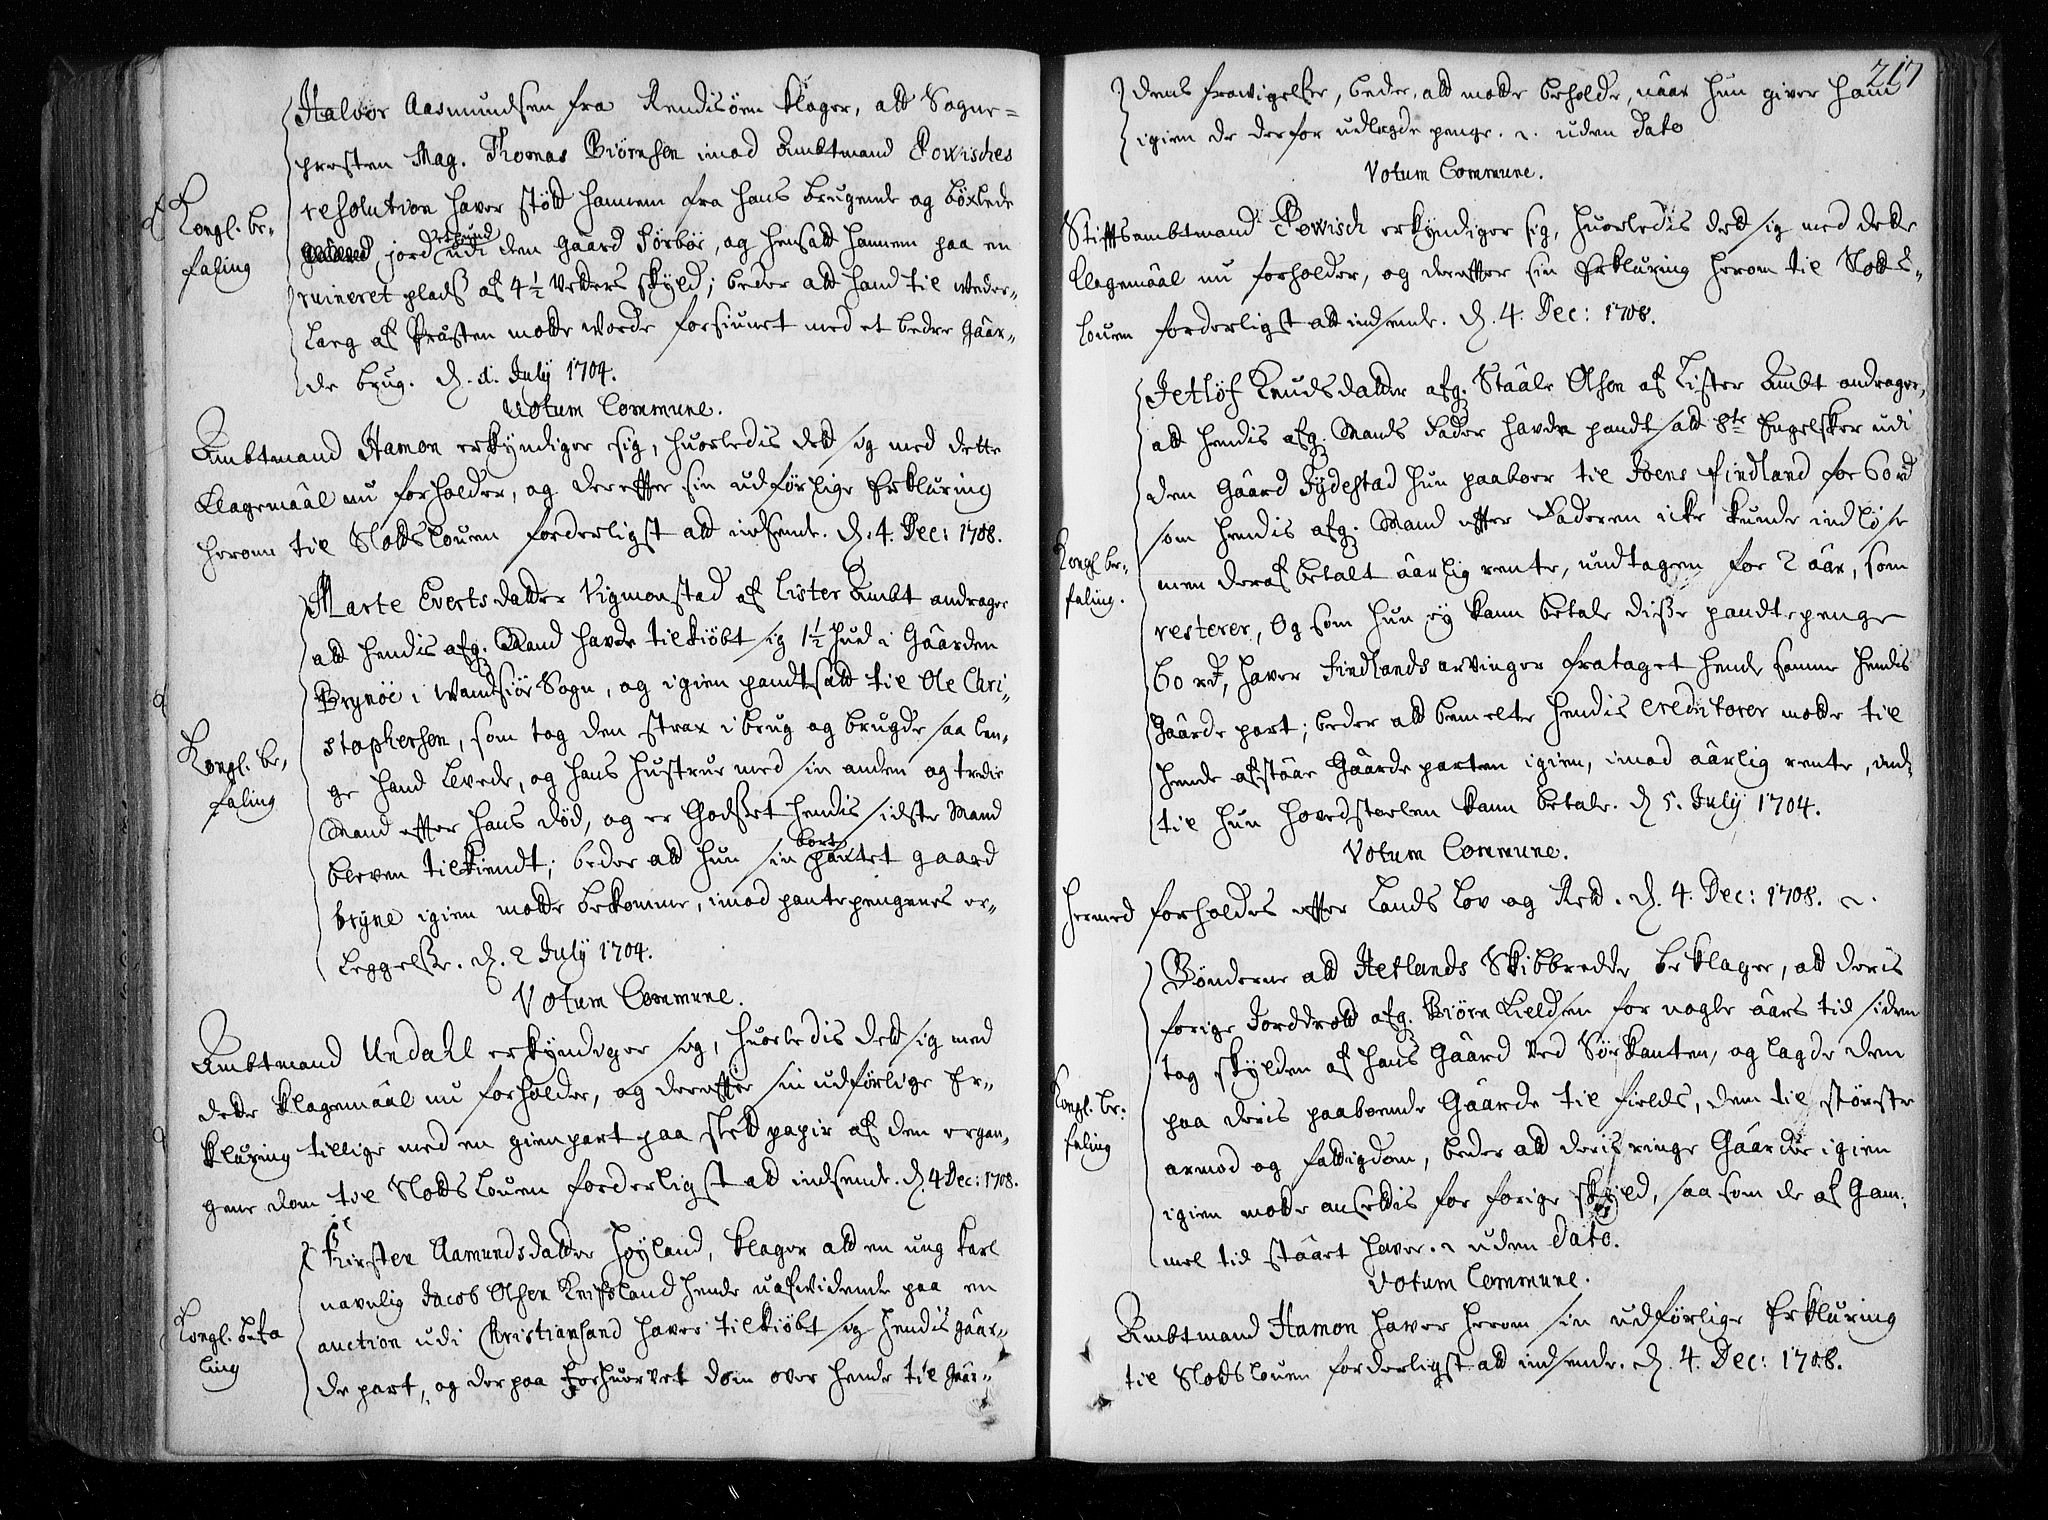 Halvor Aasmundsen fra Rendisöen klager, att Sogne=
presten Mag. Thomas Biörnsen imod Ambtmand Powisches
resolution haver stöd hannem fra hans brugende og böxlede
jord udi den gaard Sörböe, og hensatt hannem paa en
Kongl. be-
faling
ruineret plads af 4½ Vetters skyld; beder att hand til weder-
laeg af Præsten motte worde forsiunet med et bedre gaar-
de brug. D. 1. July 1704.
Votum Commune.
Ambtmand Hamon erkyndiger sig, huorledis dett sig med dette
Klagemaal nu forholder, og dereffter sin udförlige Erklæring
herom til Slottslouen forderligst att indsende. D. 4. Dec: 1708.
Marte Evertsdatter Vigmonstad af Lister Ambt andrager
att hendis afg. Mand hafde tilkiöbt sig 1½ hud i Gaarden
Brynöe i Wandsiör Sogn, og igien pandtsatt til Ole Chri-
stophersen, som tog den strax i brug og brugde saa len-
Kongl. be-
faling
ge hand levede, og hans hustrue med sin anden og tredie
Mand effter hans död, og er Godset hendis sidste Mand
bleven tilkiendt; beder att hun sin bort pantet gaard
bryne igien motte bekomme, imod pantepengenes er-
leggelse. D. 2 July 1704.
Votum Commune.
Ambtmand Undahl erkyndiger sig, huorledis dett sig med
dette Klagemaal nu forholder, og dereffter sin udförlige Er-
klæring tillige med en gienpart paa slett papir af den ergan-
gene dom til Slottslouen forderligst att indsende. D. 4 Dec: 1708.
Kirsten Aamundsdatter Höyland, klager att en ung karl
navnlig Jacob Olsen Knifsland hende uafvidende paa en
Kongl. befa
ling
auction udi Christiansand haver tilkiöbt sig hendis gaar-
de part, og derpaa forhuervet dom over hende til gaar-
217
dens fravigelse, beder, att motte beholde, naar hun giver ham
igien de derfor udlagde penge. uden dato
Votum Commune.
Stifftsambtmand Powisch erkyndiger sig, huorledis dett sig med dette
klagemaal nu forholder, og dereffter sin Erklæring herom til Slotts-
louen forderligst att indsende. D. 4. Dec: 1708.
Jetlöf Knudsdatter afg. Staale Olsen af Lister Ambt andrager,
att hendis afg. Mands Fader hafde pandtsatt 8te Engelsker udi
den Gaard Fydestad hun paaboer til Joens Findland for 60 rd
som hendis afg. Mand effter Faderen icke kunde indlöse
Kongl be-
faling.
men deraf betalt aarlig rente, undtagen for 2 aar, som
resterer, og som hun ey kan betale disse pandtepenge
60 rd, haver Findlands arvinger frataget hende samme hendis
gaarde part; beder att bemelte hendis creditorer motte til
hende afstaae Gaarde parten igien, imod aarlig rente, ind-
til hun hovedstoelen kan betale. D 5. July 1704.
Votum Commune.
Hermed forholdes effter Lands Lov og Rett. D. 4. Dec: 1708.
Bönderne att Hetlands Skibbredde beklager, att deris
forige Jorddrott afg. Biörn Lieldsen for nogle aars tid siden
tog skylden af hans Gaard ved Sörkanten, og lagde den
Kongl. be-
faling
paa deris paaboende Gaarde til fields, dem til störste
armod og fattigdom, beder att deris ringe Gaarde igien
igien motte ansettis for forige skyld, saa som de af gam-
mel tid staaet haver. uden dato.
Votum Commune.
Ambtmand Hamon haver herom sin udförlige Erklæring
til Slottslouen forderligst att indsende. D. 4. Dec: 1708.